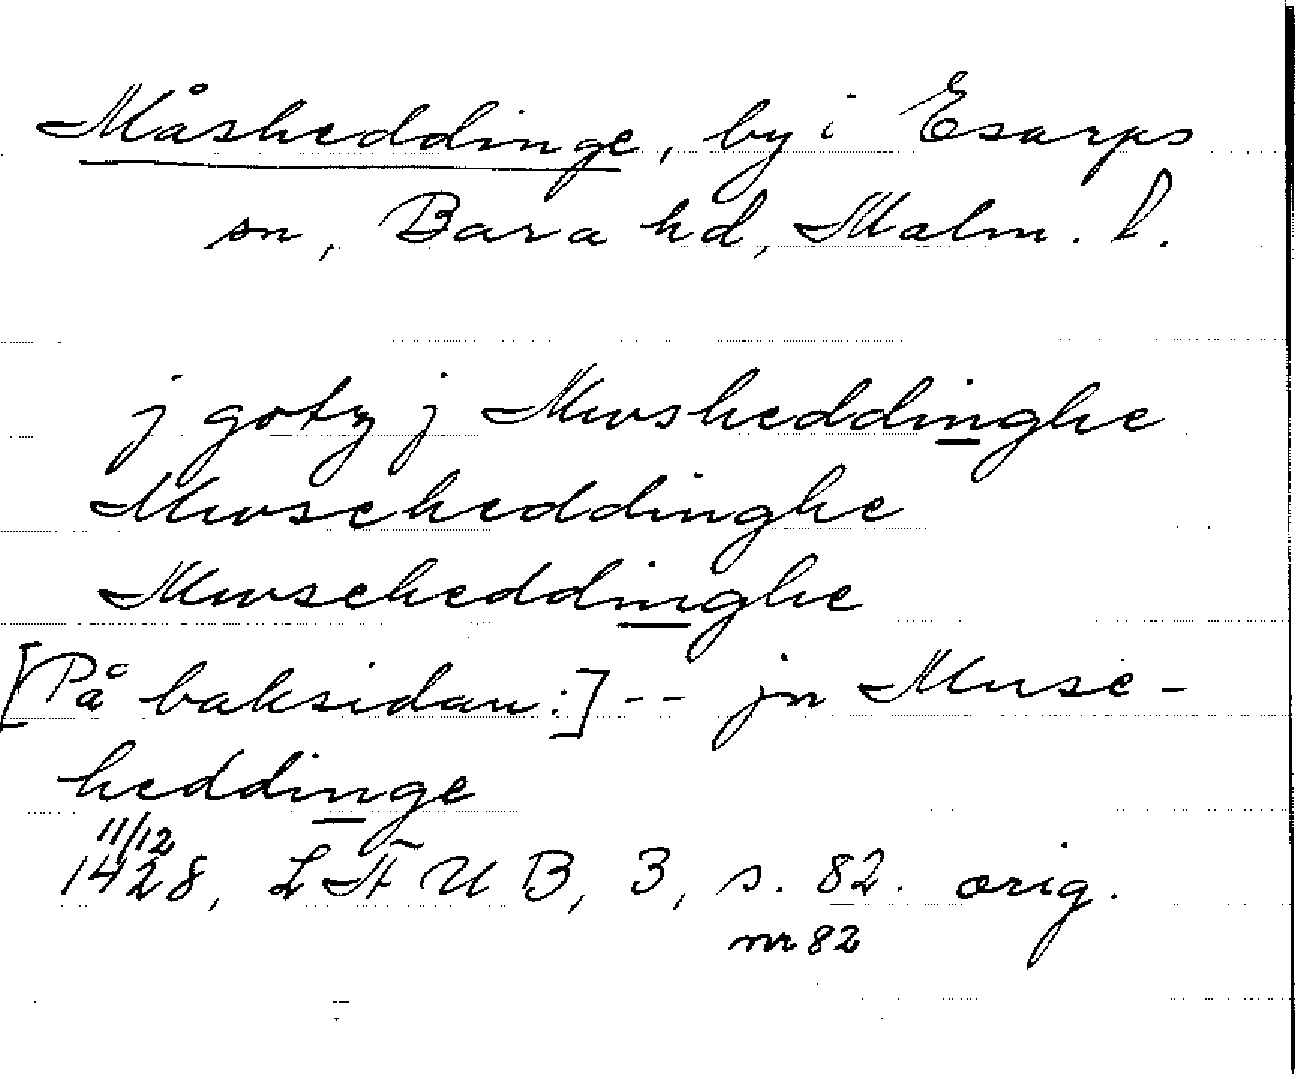 Måsheddinge, by i Esarps
sn, Bara hd, Malm. l.
j gotz j Mwsheddinghe
Mwscheddinghe
Mwscheddinghe
[På baksidan:] -- jn Muse-
heddinge
11/12
1428, LÄUB, 3, s. 82. orig.
nr 82